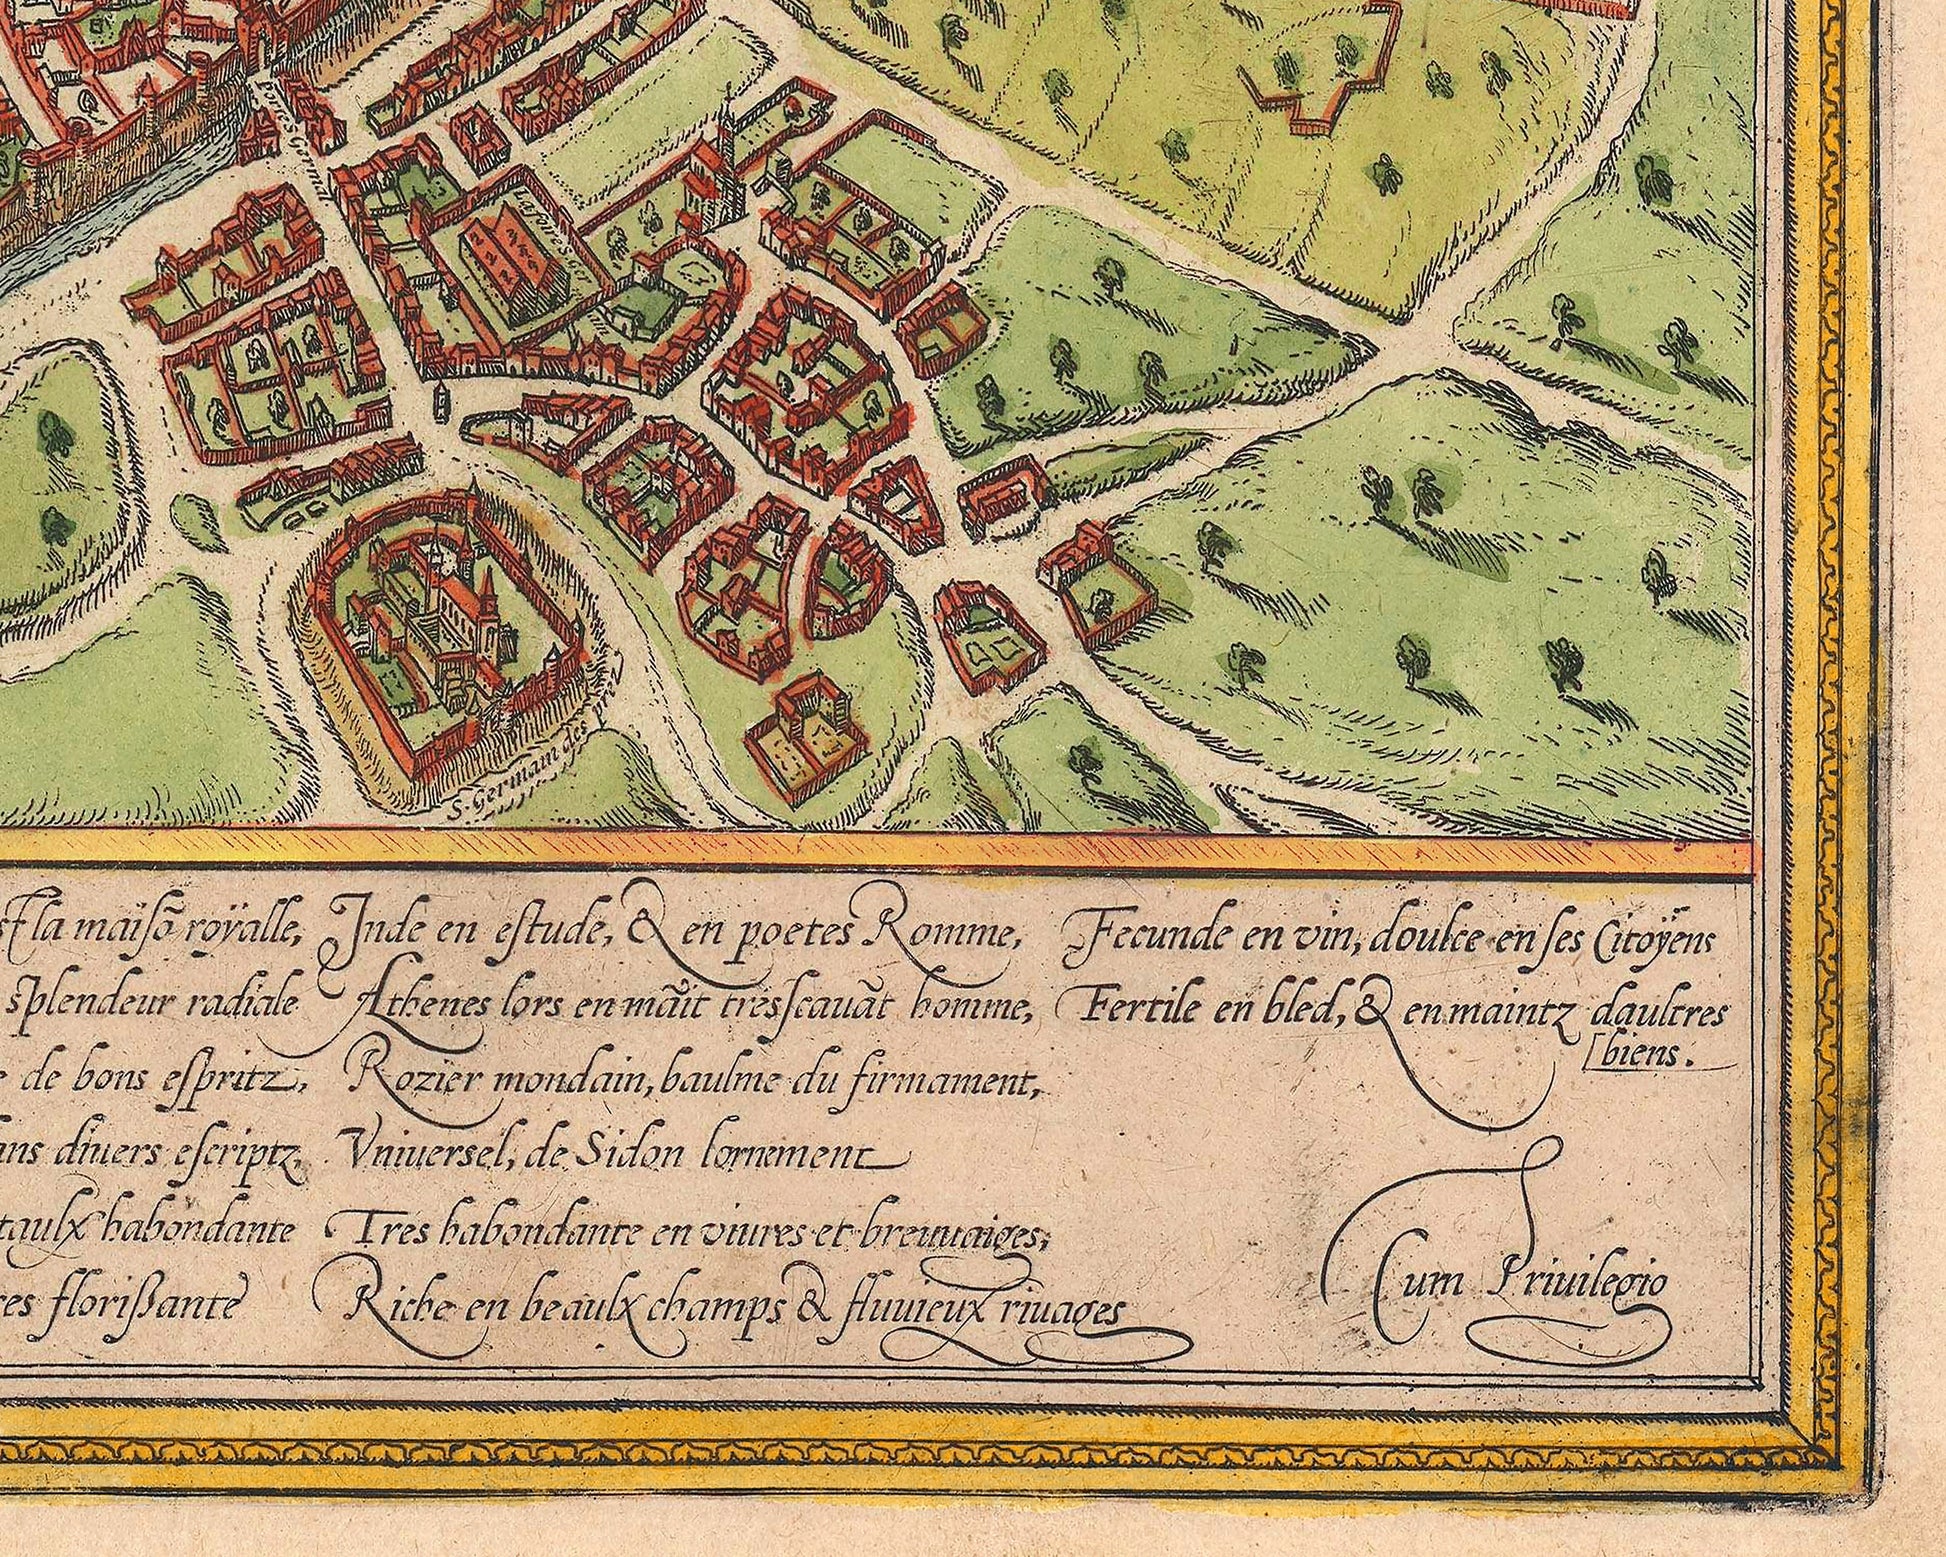 Porte S Germai
La foire S Ger
S. Germain des prez
st la maisõ royalle,
splendeur radiale
de bons espritz,
ns diuers escriptz,
taulx habondante
es florißante
Inde en estude, & en poetes Romme,
Athenes lors en mãit tresscauãt homme,
Rozier mondain, baulme du firmament,
Vniuersel, de Sidon lornement
Tres habondante en viures et breuuaiges,
Riche en beaulx champs & fluuieux riuages
Fecunde en vin, doulce en ses Citoÿens
Fertile en bled, & en maintz daultres
[biens.
Cum Priuilegio